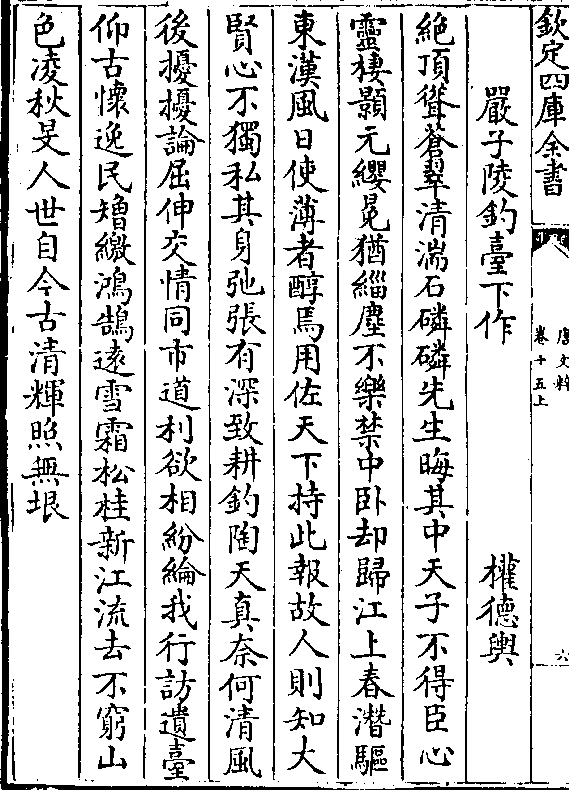 欽定四庫全書
唐文粹
卷十五上
六
嚴子陵釣臺下作
權德輿
絶頂聳蒼翠清湍石磷磷先生晦其中天子不得臣心
靈棲顥元纓冕猶緇塵不樂禁中卧却歸江上春潛驅
東漢風日使薄者醇焉用佐天下持此報故人則知大
賢心不獨私其身弛張有深致耕釣陶天真奈何清風
後擾擾論屈伸交情同市道利欲相紛綸我行訪遺臺
仰古懷逸民矰繳鴻鵠遠雪霜松桂新江流去不窮山
色凌秋旻人世自今古清輝照無垠